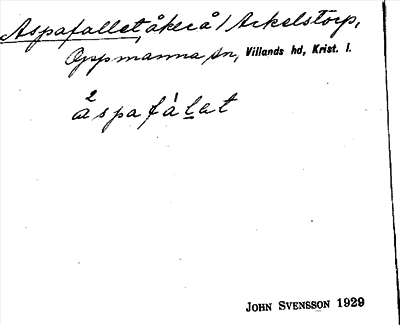 Aspafallet, åker å Arkelstorp,
Oppmanna sn, Villands hd, Krist. l.
aspafalet
JOHN SVENSSON 1929